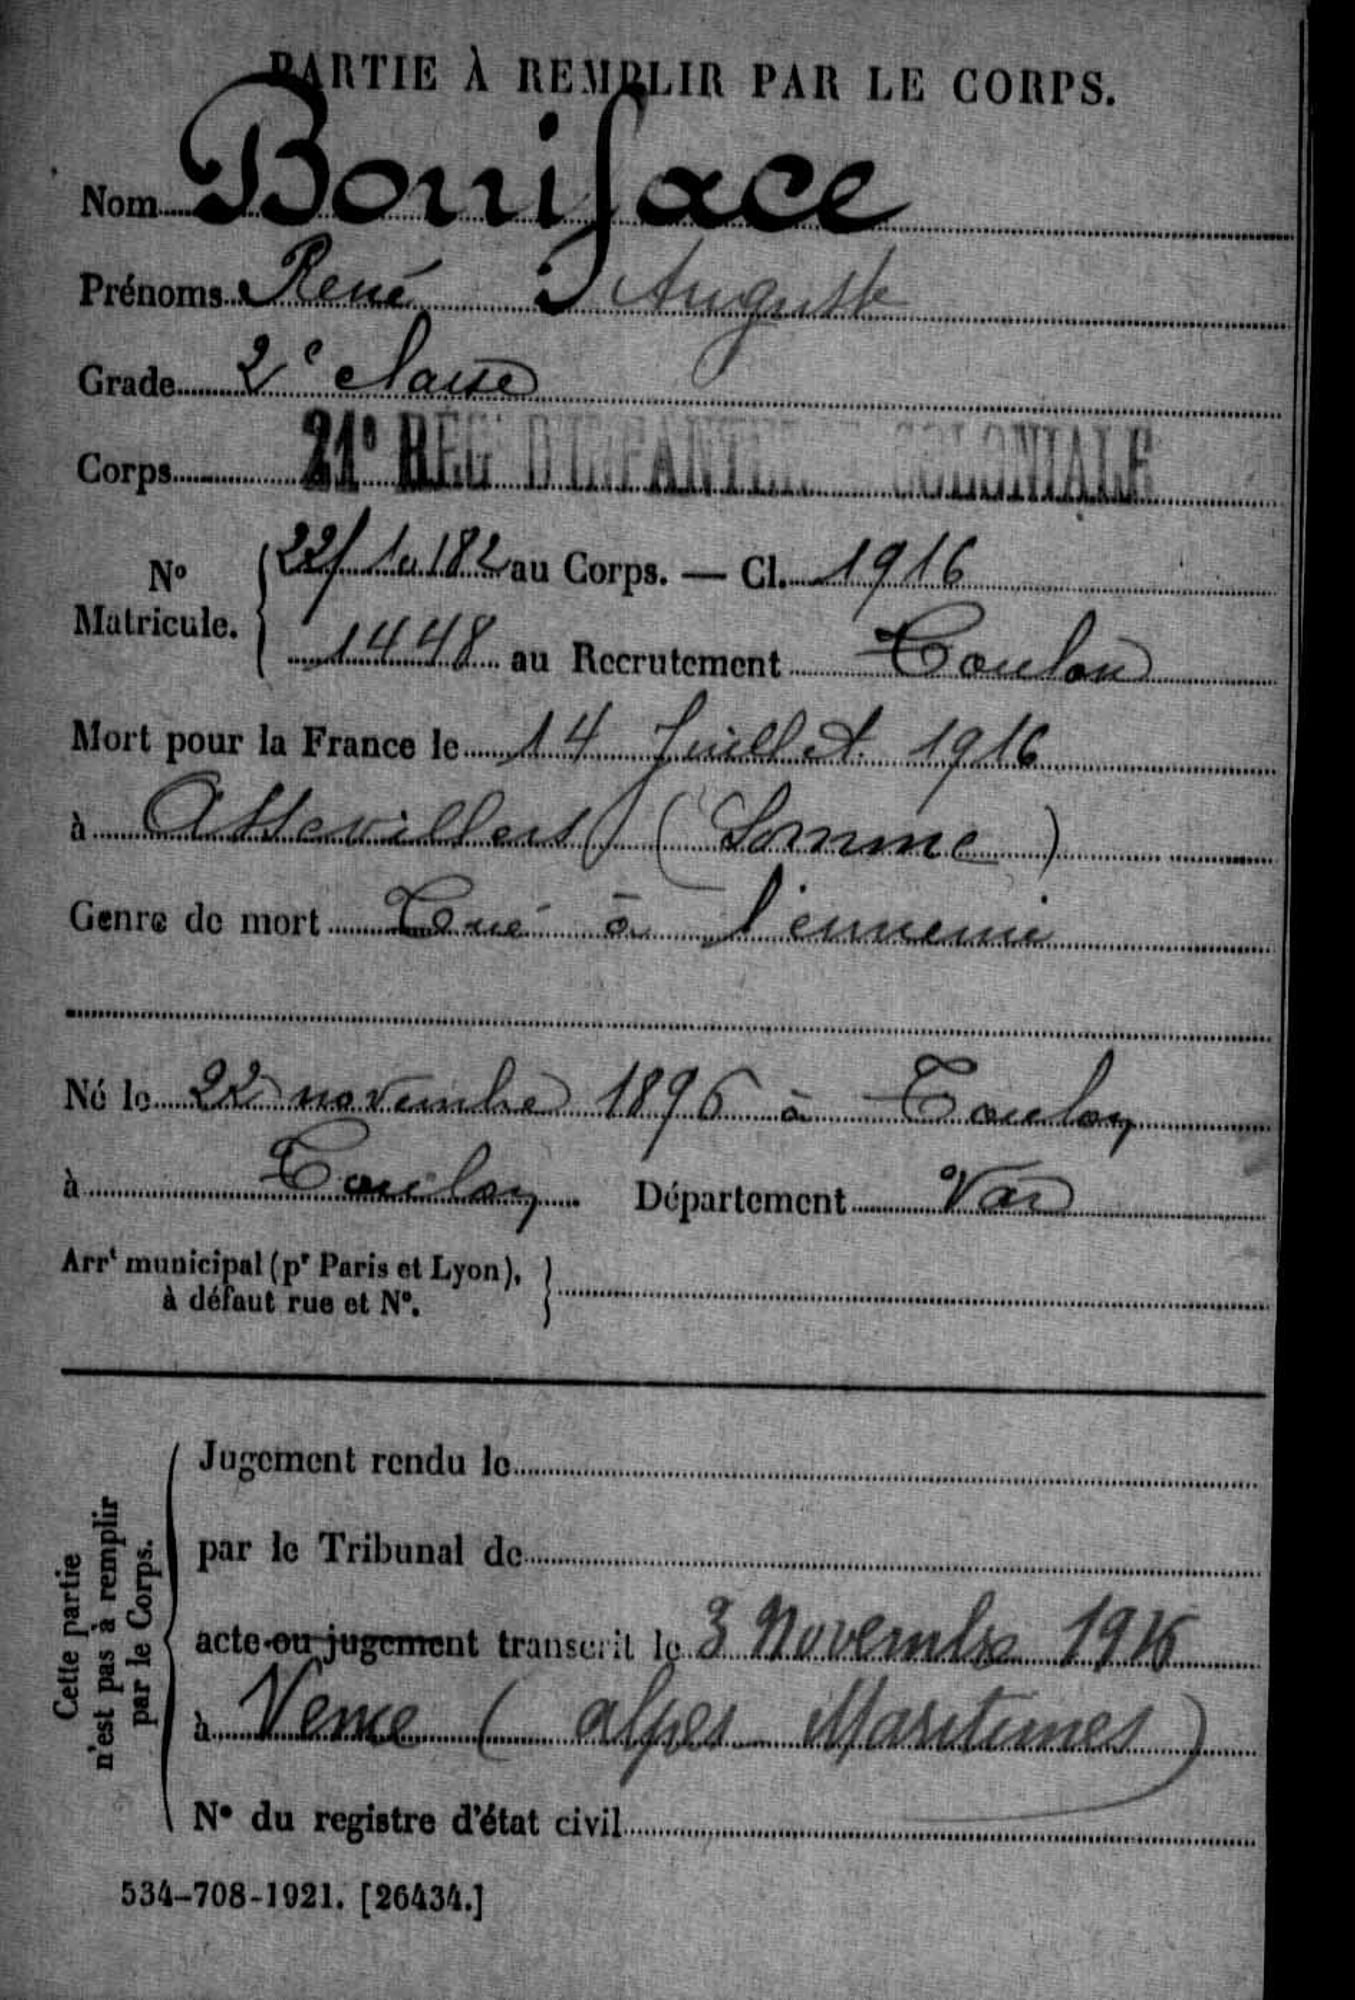 PARTIE À REMPLIR PAR LE CORPS.
Nom Boniface
Prénoms René Auguste
Grade 2e classe
Corps 21e REG D'INFANTERIE COLONIALE
No Matricule. 22/10182 au Corps. — Cl. 1916
1448 au Recrutement Toulon
Mort pour la France le 14 Juillet 1916
à Assevillers (Somme)
Genre de mort Tué à l'ennemi
Né le 22 novembre 1896 à Toulon
à Toulon Département Var
Arrt municipal (pr Paris et Lyon),
à défaut rue et No.
Cette partie
n'est pas à remplir
par le Corps.
Jugement rendu le
par le Tribunal de
acte ou jugement transcrit le 3 Novembre 1916
à Vence (Alpes Maritimes)
No du registre d'état civil
534-708-1921. [26434.]